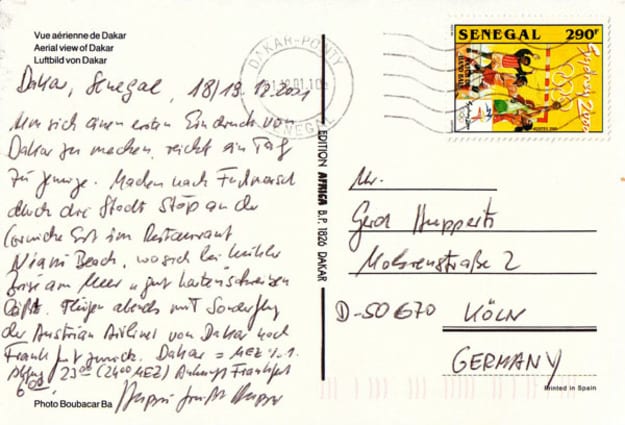 Vue aérienne de Dakar
Aerial view of Dakar
Luftbild von Dakar
Dakar, Senegal, 18/19.12.2001
Um sich einen ersten Eindruck von
Dakar zu machen, reicht ein Tag
zu wenige. Machen nach Fußmarsch
durch die Stadt Stop an der
Corniche Est im Restaurant
Niani Beach, wo sich bei kühler
Brise am Meer gut kartenschreiben
läßt. Fliegen abends mit Sonderflug
der Austrian Airlines von Dakar nach
Frankfurt zurück. Dakar = MEZ ./. 1.
Abflug 23⁰⁰ (24⁰⁰ MEZ) Ankunft Frankfurt
6⁰⁰
Photo Boubacar Ba
EDITION AFRICA B.P. 1826 DAKAR
DAKAR-PONTY
SENEGAL
SENEGAL 290F
Sydney 2000
Hr.
Gerd Huppertz
Mohrenstraße 2
D-50670 KÖLN
GERMANY
Printed in Spain